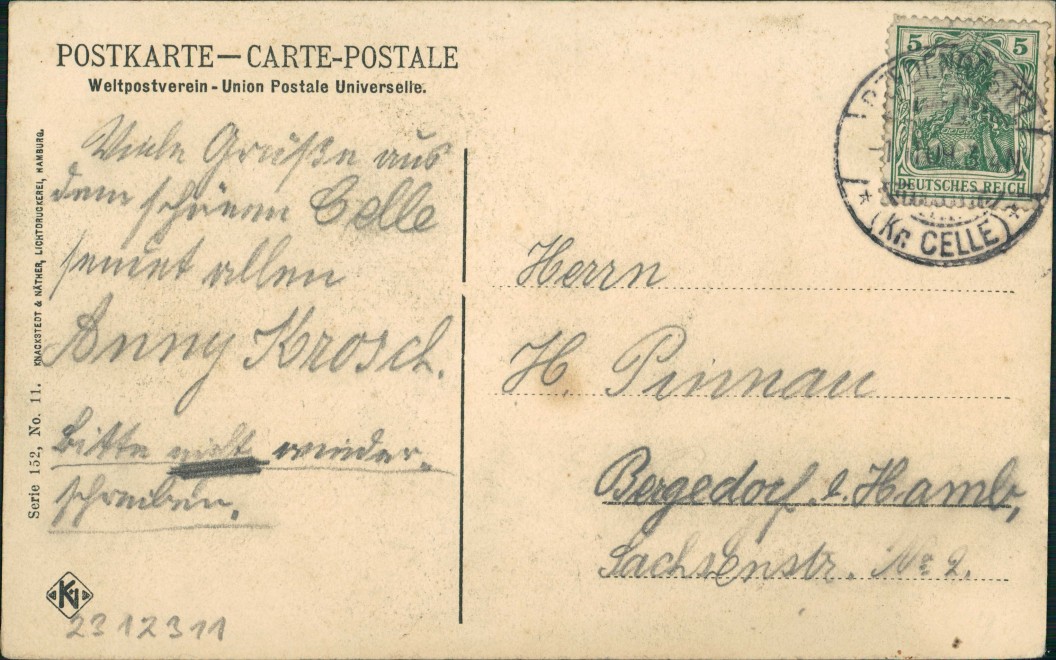 POSTKARTE—CARTE-POSTALE
Weltpostverein - Union Postale Universelle.
Viele Grüße aus
dem schönen Celle
sendet allen
Anny Krosch.
Bitte nicht wieder
schreiben.
Serie 152, No. 11. KNACKSTEDT & NÄTHER, LICHTDRUCKEREI, HAMBURG.
23 12 311
5 5
DEUTSCHES REICH
* (Kr. CELLE) *
Herrn
H. Pinnau
Bergedorf b. Hamb,
Sachsenstr. No 2.